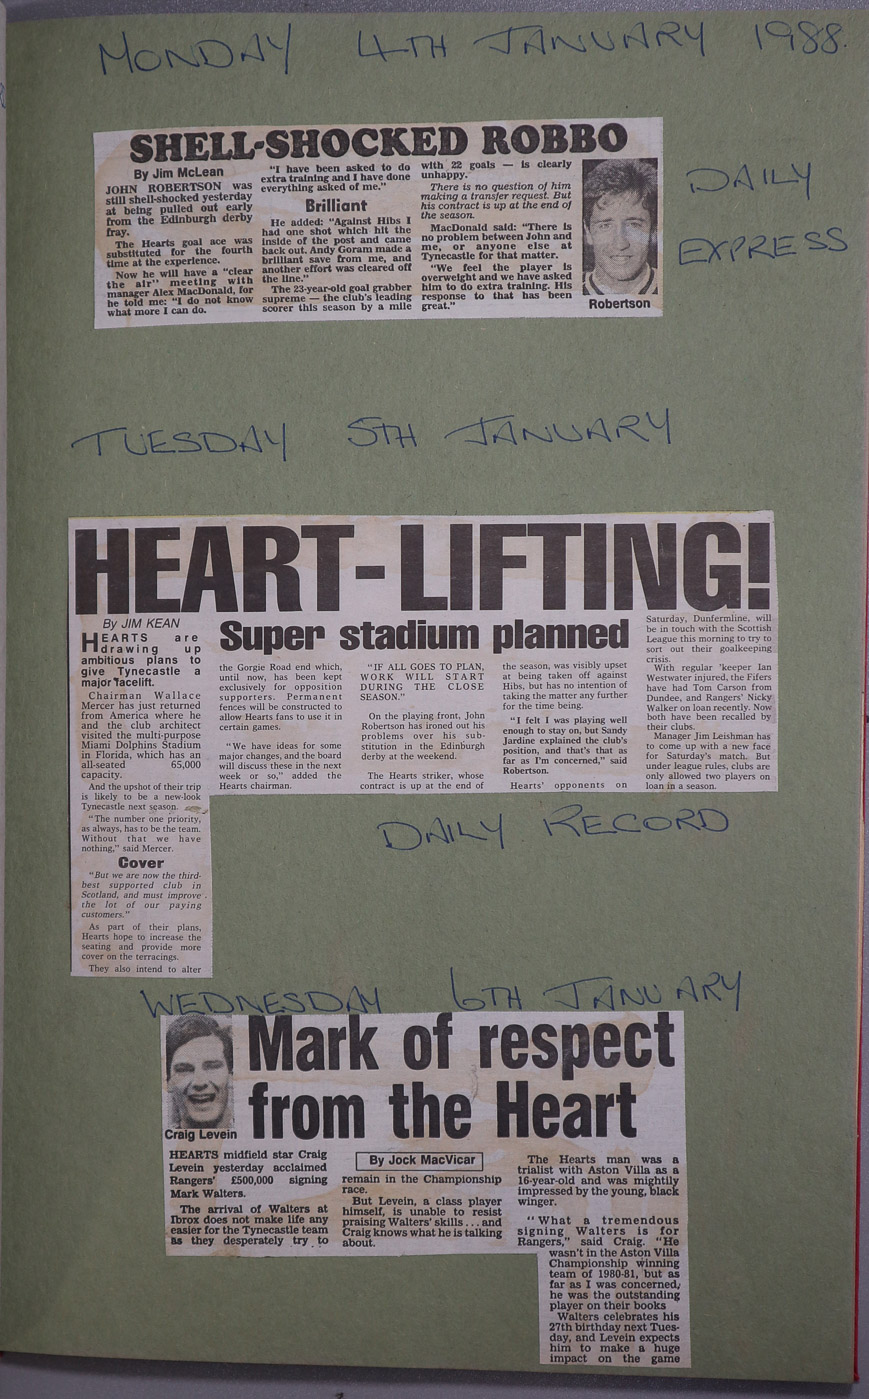 MONDAY 4TH JANUARY 1988.
SHELL-SHOCKED ROBBO
By Jim McLean
JOHN ROBERTSON was
still shell-shocked yesterday
at being pulled out early
from the Edinburgh derby
fray.
The Hearts goal ace was
substituted for the fourth
time at the experience.
Now he will have a "clear
the air" meeting with
manager Alex MacDonald, for
he told me: "I do not know
what more I can do.
"I have been asked to do
extra training and I have done
everything asked of me."
Brilliant
He added: "Against Hibs I
had one shot which hit the
inside of the post and came
back out. Andy Goram made a
brilliant save from me, and
another effort was cleared off
the line."
The 23-year-old goal grabber
supreme — the club's leading
scorer this season by a mile
with 22 goals — is clearly
unhappy.
There is no question of him
making a transfer request. But
his contract is up at the end of
the season.
MacDonald said: "There is
no problem between John and
me, or anyone else at
Tynecastle for that matter.
"We feel the player is
overweight and we have asked
him to do extra training. His
response to that has been
great."
Robertson
DAILY
EXPRESS
TUESDAY 5TH JANUARY
HEART-LIFTING!
Super stadium planned
By JIM KEAN
HEARTS are
drawing up
ambitious plans to
give Tynecastle a
major facelift.
Chairman Wallace
Mercer has just returned
from America where he
and the club architect
visited the multi-purpose
Miami Dolphins Stadium
in Florida, which has an
all-seated 65,000
capacity.
And the upshot of their trip
is likely to be a new-look
Tynecastle next season.
"The number one priority,
as always, has to be the team.
Without that we have
nothing," said Mercer.
Cover
"But we are now the third-
best supported club in
Scotland, and must improve
the lot of our paying
customers."
As part of their plans,
Hearts hope to increase the
seating and provide more
cover on the terracings.
They also intend to alter
the Gorgie Road end which,
until now, has been kept
exclusively for opposition
supporters. Permanent
fences will be constructed to
allow Hearts fans to use it in
certain games.
"We have ideas for some
major changes, and the board
will discuss these in the next
week or so," added the
Hearts chairman.
"IF ALL GOES TO PLAN,
WORK WILL START
DURING THE CLOSE
SEASON."
On the playing front, John
Robertson has ironed out his
problems over his sub-
stitution in the Edinburgh
derby at the weekend.
The Hearts striker, whose
contract is up at the end of
the season, was visibly upset
at being taken off against
Hibs, but has no intention of
taking the matter any further
for the time being.
"I felt I was playing well
enough to stay on, but Sandy
Jardine explained the club's
position, and that's that as
far as I'm concerned," said
Robertson.
Hearts' opponents on
Saturday, Dunfermline, will
be in touch with the Scottish
League this morning to try to
sort out their goalkeeping
crisis.
With regular 'keeper Ian
Westwater injured, the Fifers
have had Tom Carson from
Dundee, and Rangers' Nicky
Walker on loan recently. Now
both have been recalled by
their clubs.
Manager Jim Leishman has
to come up with a new face
for Saturday's match. But
under league rules, clubs are
only allowed two players on
loan in a season.
DAILY RECORD
WEDNESDAY 6TH JANUARY
Mark of respect
from the Heart
Craig Levein
HEARTS midfield star Craig
Levein yesterday acclaimed
Rangers' £500,000 signing
Mark Walters.
The arrival of Walters at
Ibrox does not make life any
easier for the Tynecastle team
as they desperately try to
By Jock MacVicar
remain in the Championship
race.
But Levein, a class player
himself, is unable to resist
praising Walters' skills . . . and
Craig knows what he is talking
about.
The Hearts man was a
trialist with Aston Villa as a
16-year-old and was mightily
impressed by the young, black
winger.
"What a tremendous
signing Walters is for
Rangers," said Craig. "He
wasn't in the Aston Villa
Championship winning
team of 1980-81, but as
far as I was concerned,
he was the outstanding
player on their books
Walters celebrates his
27th birthday next Tues-
day, and Levein expects
him to make a huge
impact on the game